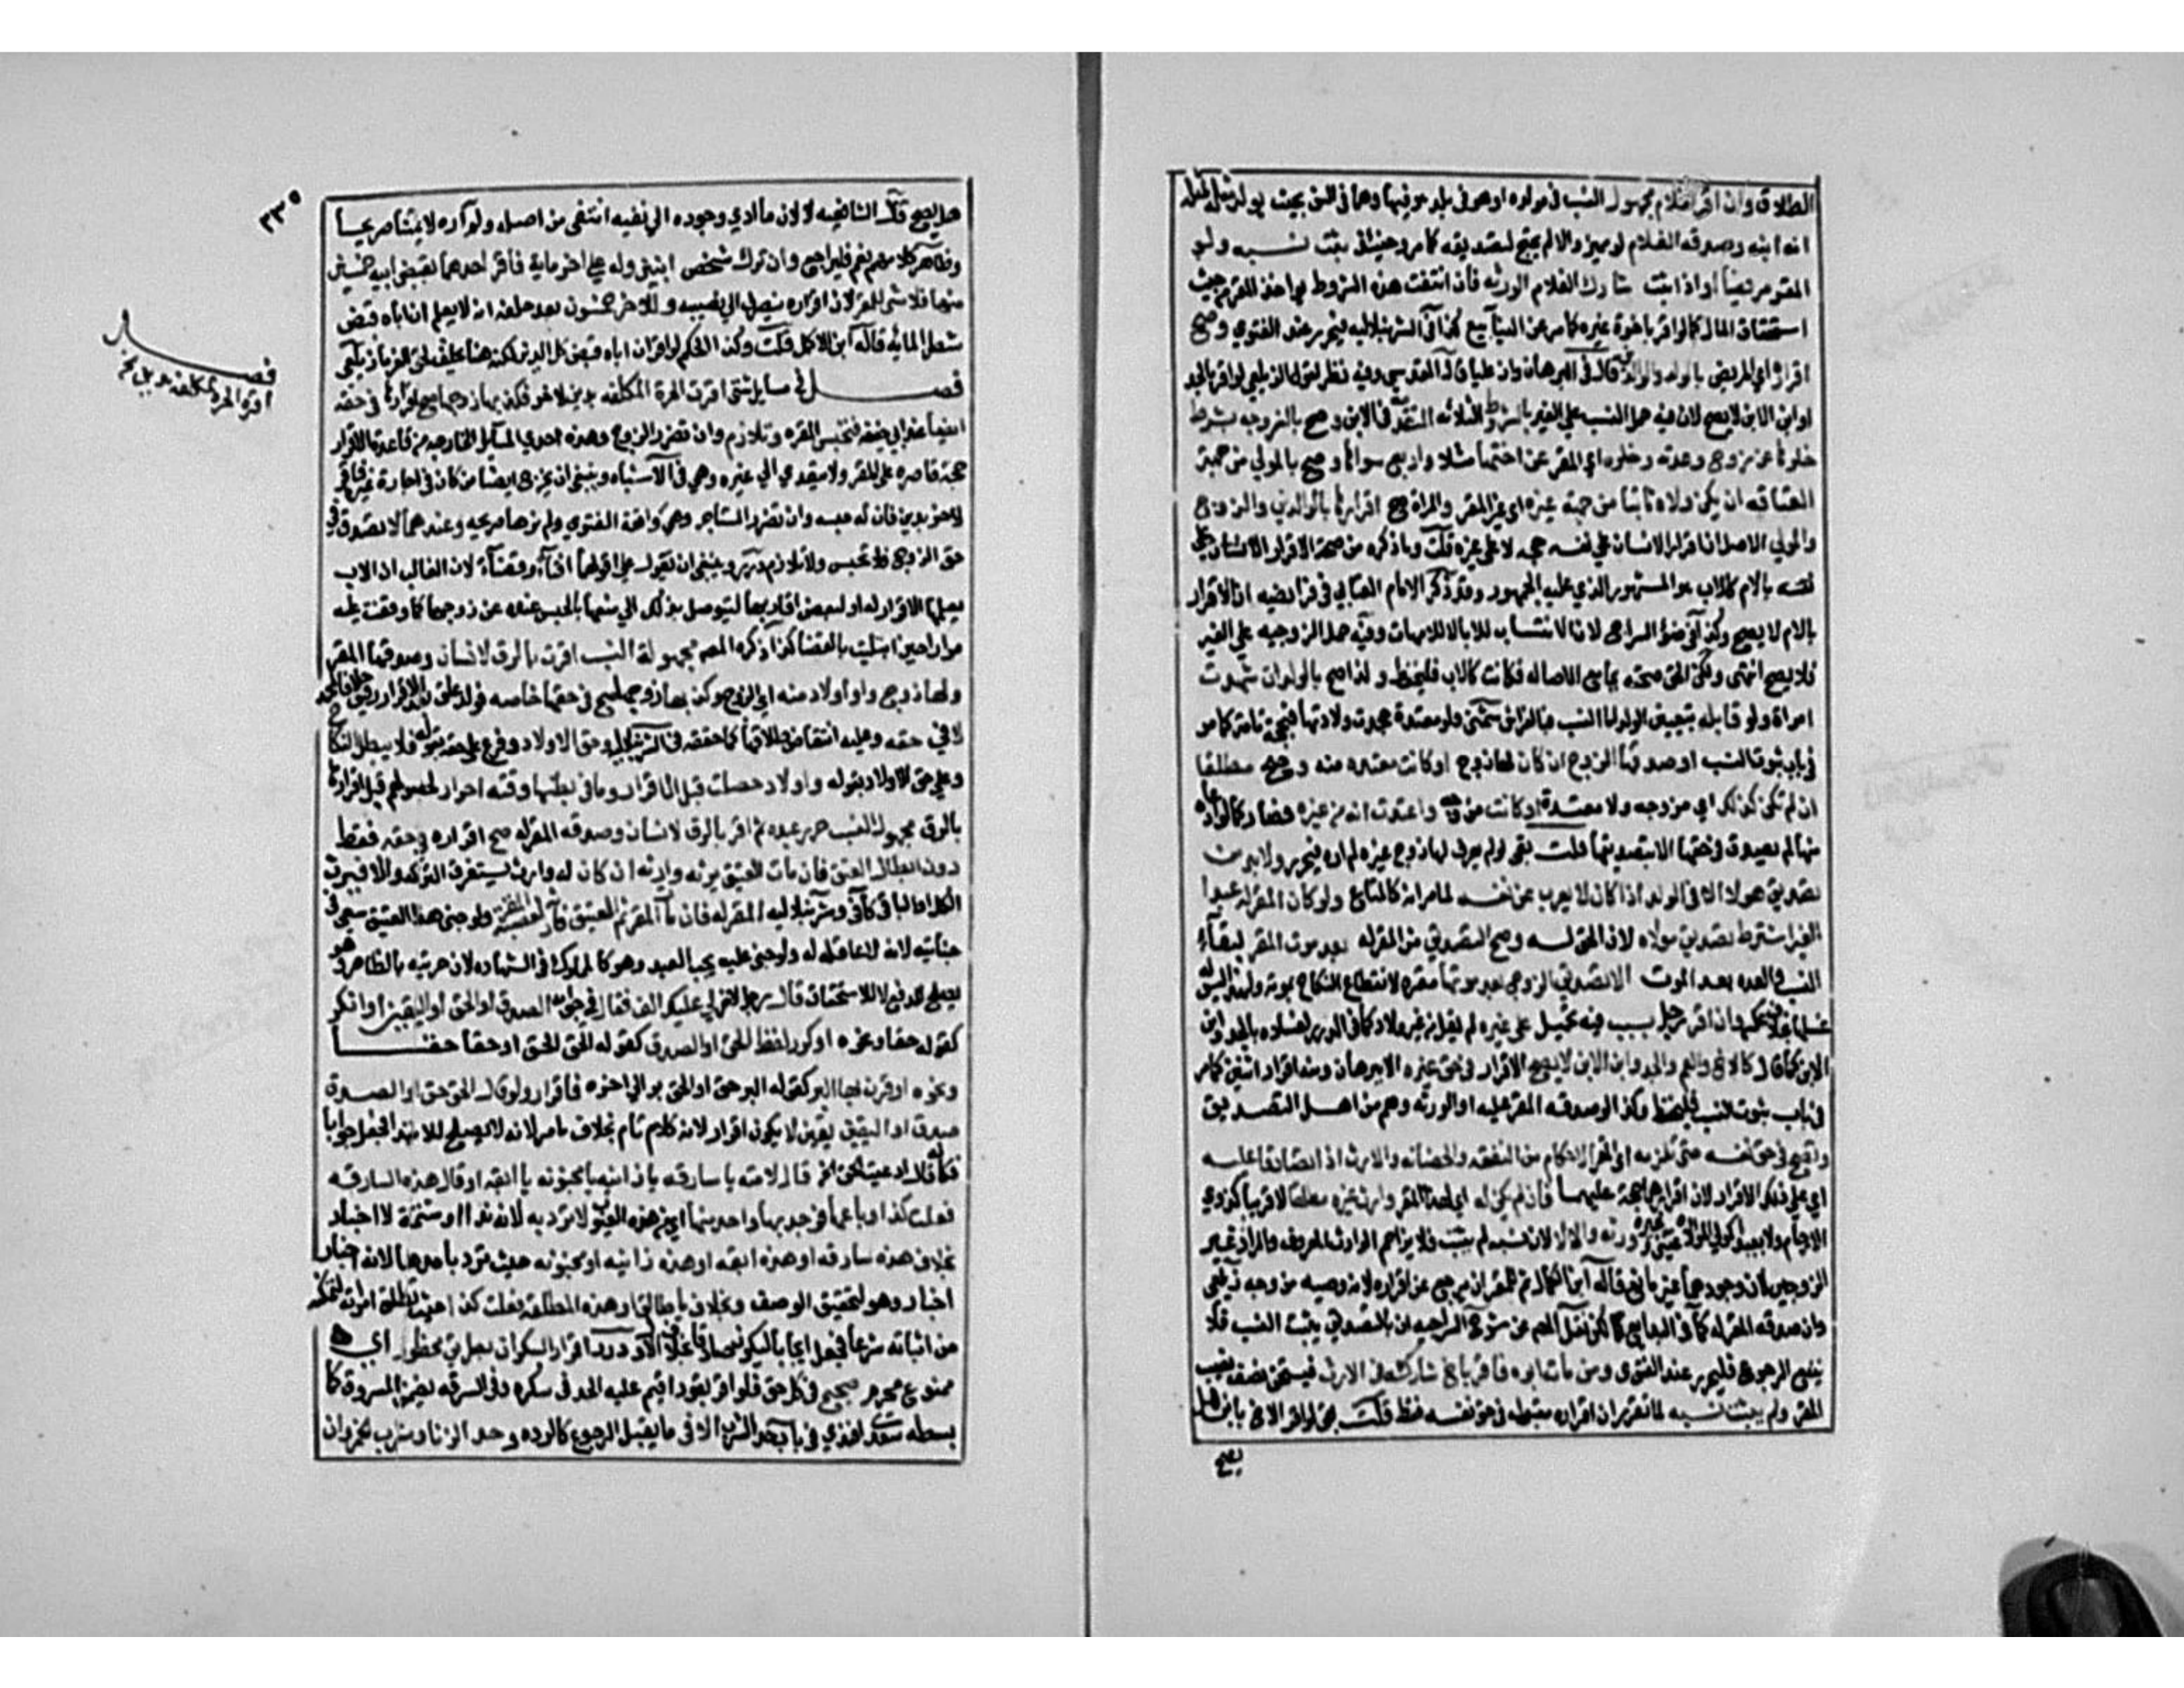 الطلاق وان اقر لغلام مجهول النسب في مولده او هو في بلد هو فيها وهما في السن بحيث يولد مثله لمثله
انه ابنه وصدقه الغلام لو مميز والا لم يحتج لتصديقه كما مر وحينئذ يثبت نسبه ولو
المقر مريضا واذا ثبت شارك الغلام الورثه فان انتفت هذه الشروط يواخذ المقر من حيث
استحقاق المال كما لو اقر باخوة غيره كما مر عن الينابيع كذا في الشرنبلاليه فيحرر عند الفتوي وصح
اقراره اي المريض بالولد والوالدين قال في البرهان وان عليا قال المقدسي وفيه نظر لقول الزيلعي لو اقر بالجد
او ابن الابن لا يصح لان فيه حمل النسب علي الغير بالشروط الثلاثه المتقدمه في الابن وصح بالزوجه بشرط
خلوها عن زوج وعدته وخلوه اي المقر عن اختها مثلا واربع سواها وصح بالمولي من جهة
العتاقه ان لم يكن ولاه ثابتا من جهة غيره اي غير المقر والمراة صح اقرارها بالوالدين والزوج
والمولي الاصل ان اقرار الانسان علي نفسه حجه لا علي غيره قلت وما ذكره من صحة الاقرار
بالام كالاب هو المشهور الذي عليه الجمهور وقد ذكر الامام العتابي في فرايضه ان الاقرار
بالام لا يصح وكذا في ضوء السراج لان الانتساب للابا لا للامهات وفيه حمل الزوجيه علي الغير
فلا يصح انتهى ولكن الحق صحته بجامع الاصاله فكانت كالاب فليحفظ وكذا صح بالولد ان شهدت
امراة ولو قابله بتعيين الولد اما النسب فبالفراش شمني ولو معتدة جحدت ولادتها فبحجة تامة كما مر
في باب ثبوت النسب او صدقها الزوج ان كان لها زوج او كانت معتده منه وصح مطلقا
ان لم تكن كذلك اي مزوجه ولا معتدة او كانت مزوجه وادعت انه من غيره فصار كما لو ادعاه
منها لم يصدق في حقها الا بتصديقها قلت بقي لو لم يعرف لها زوج غيره لم اره فيحرر ولا بد من
تصديق هولا الا في الولد اذا كان لا يعبر عن نفسه لما مر انه كالمتاع ولو كان المقر له عبدا
الغير اشترط تصديق مولاه لان الحق له وصح التصديق من المقر له بعد موت المقر لبقاء
النسب والعده بعد الموت الا تصديق الزوج بعد موتها مقره لانقطاع النكاح بموتها
وان اقر رجل بنسب فيه تحميل علي غيره لم يقل من غير ولاد كما في الدرر لفساده بالجد وابن
الابن كما قال كالاخ والعم والجد وابن الابن لا يصح الاقرار في حق غيره الا ببرهان ومنه اقرار اثنين كما مر
في باب ثبوت النسب فليحفظ وكذا لو صدقه المقر عليه او الورثه وهم من اهل التصديق
ويصح في حق نفسه حتى تلزمه اي المقر الاحكام من النفقه والحضانه والارث اذا تصادقا عليه
اي علي ذلك الاقرار لان اقرارهما حجة عليهما فان لم يكن له اي لهذا المقر وارث غيره مطلقا لا قريبا كذوي
الارحام ولا بعيدا كمولي الموالاة ورثه والا لا لان نسبه لم يثبت فلا يزاحم الوارث المعروف والمراد غير
الزوجين لان وجودهما غير مانع قاله ابن الكمال ثم للمقر ان يرجع عن اقراره لانه وصيه من وجه زيلعي
وان صدقه المقر له كما في البدايع لكن نقل المصنف عن شروح السراجيه ان بالتصديق يثبت النسب فلا
ينفع الرجوع فليحرر عند الفتوى ومن مات ابوه فاقر باخ شاركه في الارث فيستحق نصف نصيب
المقر ولم يثبت نسبه لما تقرر ان اقراره مقبول في حق نفسه فقط قلت بقي لو اقر الاخ بابن هل
يصح
٣٣٥
هل يصح قال الشافعيه لا لان ما ادي وجوده الي نفيه انتفى من اصله ولم اره لايمتنا صريحا
وظاهر كلامهم نعم فليراجع وان ترك شخص ابنين وله علي اخر مايه فاقر احدهما بقبض ابيه خمسين
منها فلا شي للمقر لان اقراره ينصرف الي نصيبه وللاخر خمسون بعد حلفه انه لا يعلم ان اباه قبض
شطر المايه قاله الاكمل قلت وكذا الحكم لو اقر ان اباه قبض كل الدين لكنه هنا يحلف لحق الغريم زيلعي
فصل في مسايل شتى اقرت الحرة المكلفه بدين لاخر فكذبها زوجها صح اقرارها في حقه
ايضا عند ابي حنيفه فتحبس المقره وتلازم وان تضرر الزوج وهذه احدي المسايل الخارجه من قاعدة الاقرار
حجة قاصره علي المقر ولا يتعدي الي غيره وهي في الاشباه وينبغي ان يخرج ايضا من كان في اجارة غيره فاقر
لاخر بدين فان له حبسه وان تضرر المستاجر وهي واقعة الفتوي ولم نرها صريحه وعندهما لا تصدق في
حق الزوج فلا تحبس ولا تلازم درر وينبغي ان يعول علي قولهما افتاء وقضاء لان الغالب ان الاب
يعلمها الاقرار له او لبعض اقاربها ليتوصل بذلك الي منعها بالحبس عنده عن زوجها كما وقفت عليه
مرارا حين ابتليت بالقضا كذا ذكره المص مجهولة النسب اقرت بالرق لانسان وصدقها المقر له
ولها زوج واولاد منه اي الزوج وكذبها زوجها صح في حقها خاصه فولد علق بعد الاقرار رقيق خلافا لمحمد
لا في حقه وعليه انتقاص طلاقها كما حققه في الشرنبلاليه وحق الاولاد وفرع علي حقه بقوله فلا يبطل النكاح
وعلي حق الاولاد بقوله واولاد حصلت قبل الاقرار وما في بطنها وقته احرار لحصولهم قبل اقرارها
بالرق مجهول النسب حرر عبده ثم اقر بالرق لانسان وصدقه المقر له صح اقراره في حقه فقط
دون ابطال العتق فان مات العتيق يرثه وارثه ان كان له وارث يستغرق التركه والا فيرث
الكل او الباقي كافي وشرنبلاليه المقر له فان مات المقر ثم العتيق فارثه لعصبة المقر ولو جني هذا العتيق سعي في
جنايته لانه لا عاقله له ولو جني عليه يجب ارش العبد وهو كالمملوك في الشهاده لان حريته بالظاهر وهو
يصلح للدفع لا للاستحقاق قال رجل لاخر لي عليك الف فقال في جوابه الصدق او الحق او اليقين او انكر
كقوله حقا ونحوه او كرر لفظ الحق او الصدق كقوله الحق الحق او حقا حقا
ونحوه او قرن بها البر كقوله البر حق او الحق بر الي اخره فاقرار ولو قال الحق حق او الصدق
صدق او اليقين يقين لا يكون اقرارا لانه كلام تام بخلاف ما مر لانه لا يصلح للابتدا فجعل جوابا
فكانه قال ادعيت الحق الخ قال لامته يا سارقه يا زانيه يا مجنونه يا ابقه او قال هذه السارقه
فعلت كذا وباعها فوجد بها واحد منها اي من هذه العيوب لا ترد به لانه ندا او شتيمة لا اخبار
بخلاف هذه سارقه او هذه ابقه او هذه زانيه او مجنونه حيث ترد باحدها لانه اخبار
اخبار وهو لتحقيق الوصف وبخلاف يا طالق او هذه المطلقه فعلت كذا حيث تطلق امراته لتمكنه
من اثباته شرعا فجعل ايجابا ليكون صادقا بخلاف الاول درر اقرار السكران بطريق محظور اي
ممنوع محرم صحيح في كل حق فلو اقر بقود اقيم عليه الحد في سكره وفي السرقه يضمن المسروق كما
بسطه سعدي افندي في باب حد الشرب الا في ما يقبل الرجوع كالرده وحد الزنا وشرب الخمر وان
فصل
اقرت الحرة المكلفه بدين لاخر